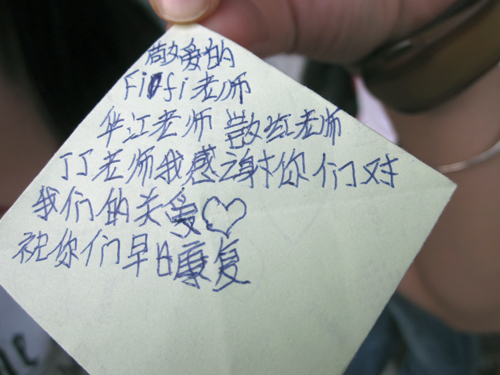 敬爱的
Fiofi老师
华江老师 敬红老师
丁丁老师我感谢你们对
我们的关爱♡
祝你们早日康复